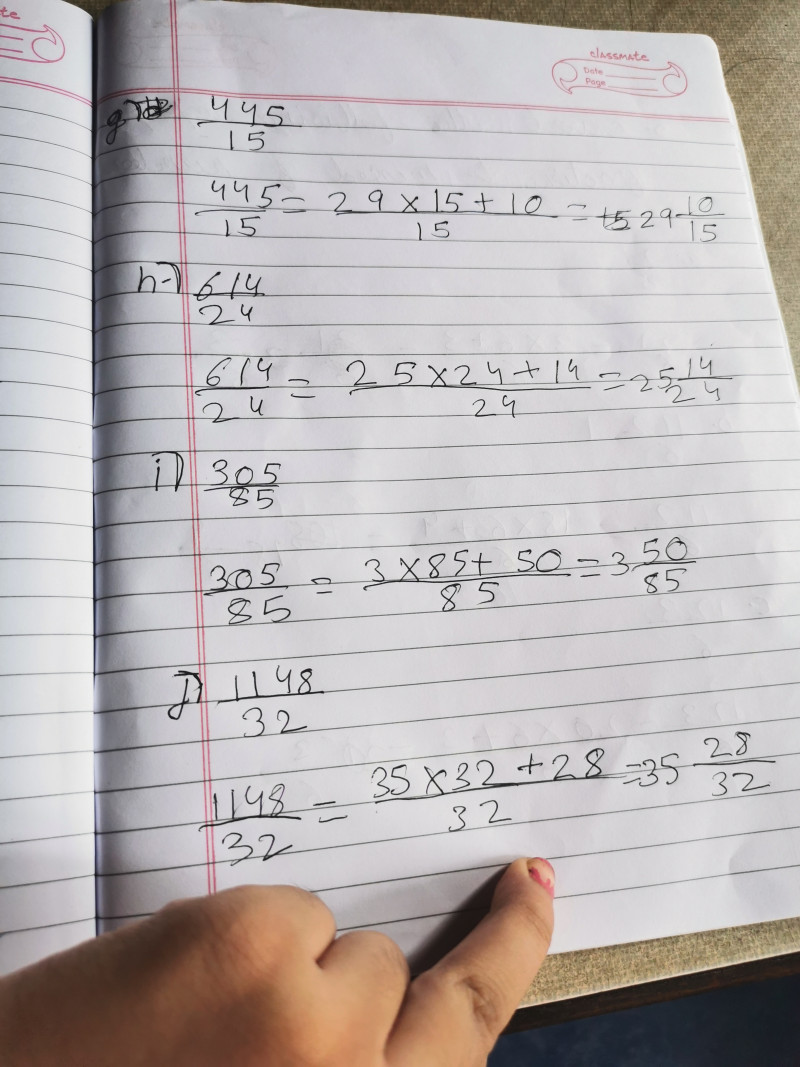 classmate
Date
Page
g) 445/15
445/15 = 29 × 15 + 10/15 = 29 10/15
h) 614/24
614/24 = 25 × 24 + 14/24 = 25 14/24
i) 305/85
305/85 = 3 × 85 + 50/85 = 3 50/85
j) 1148/32
1148/32 = 35 × 32 + 28/32 = 35 28/32